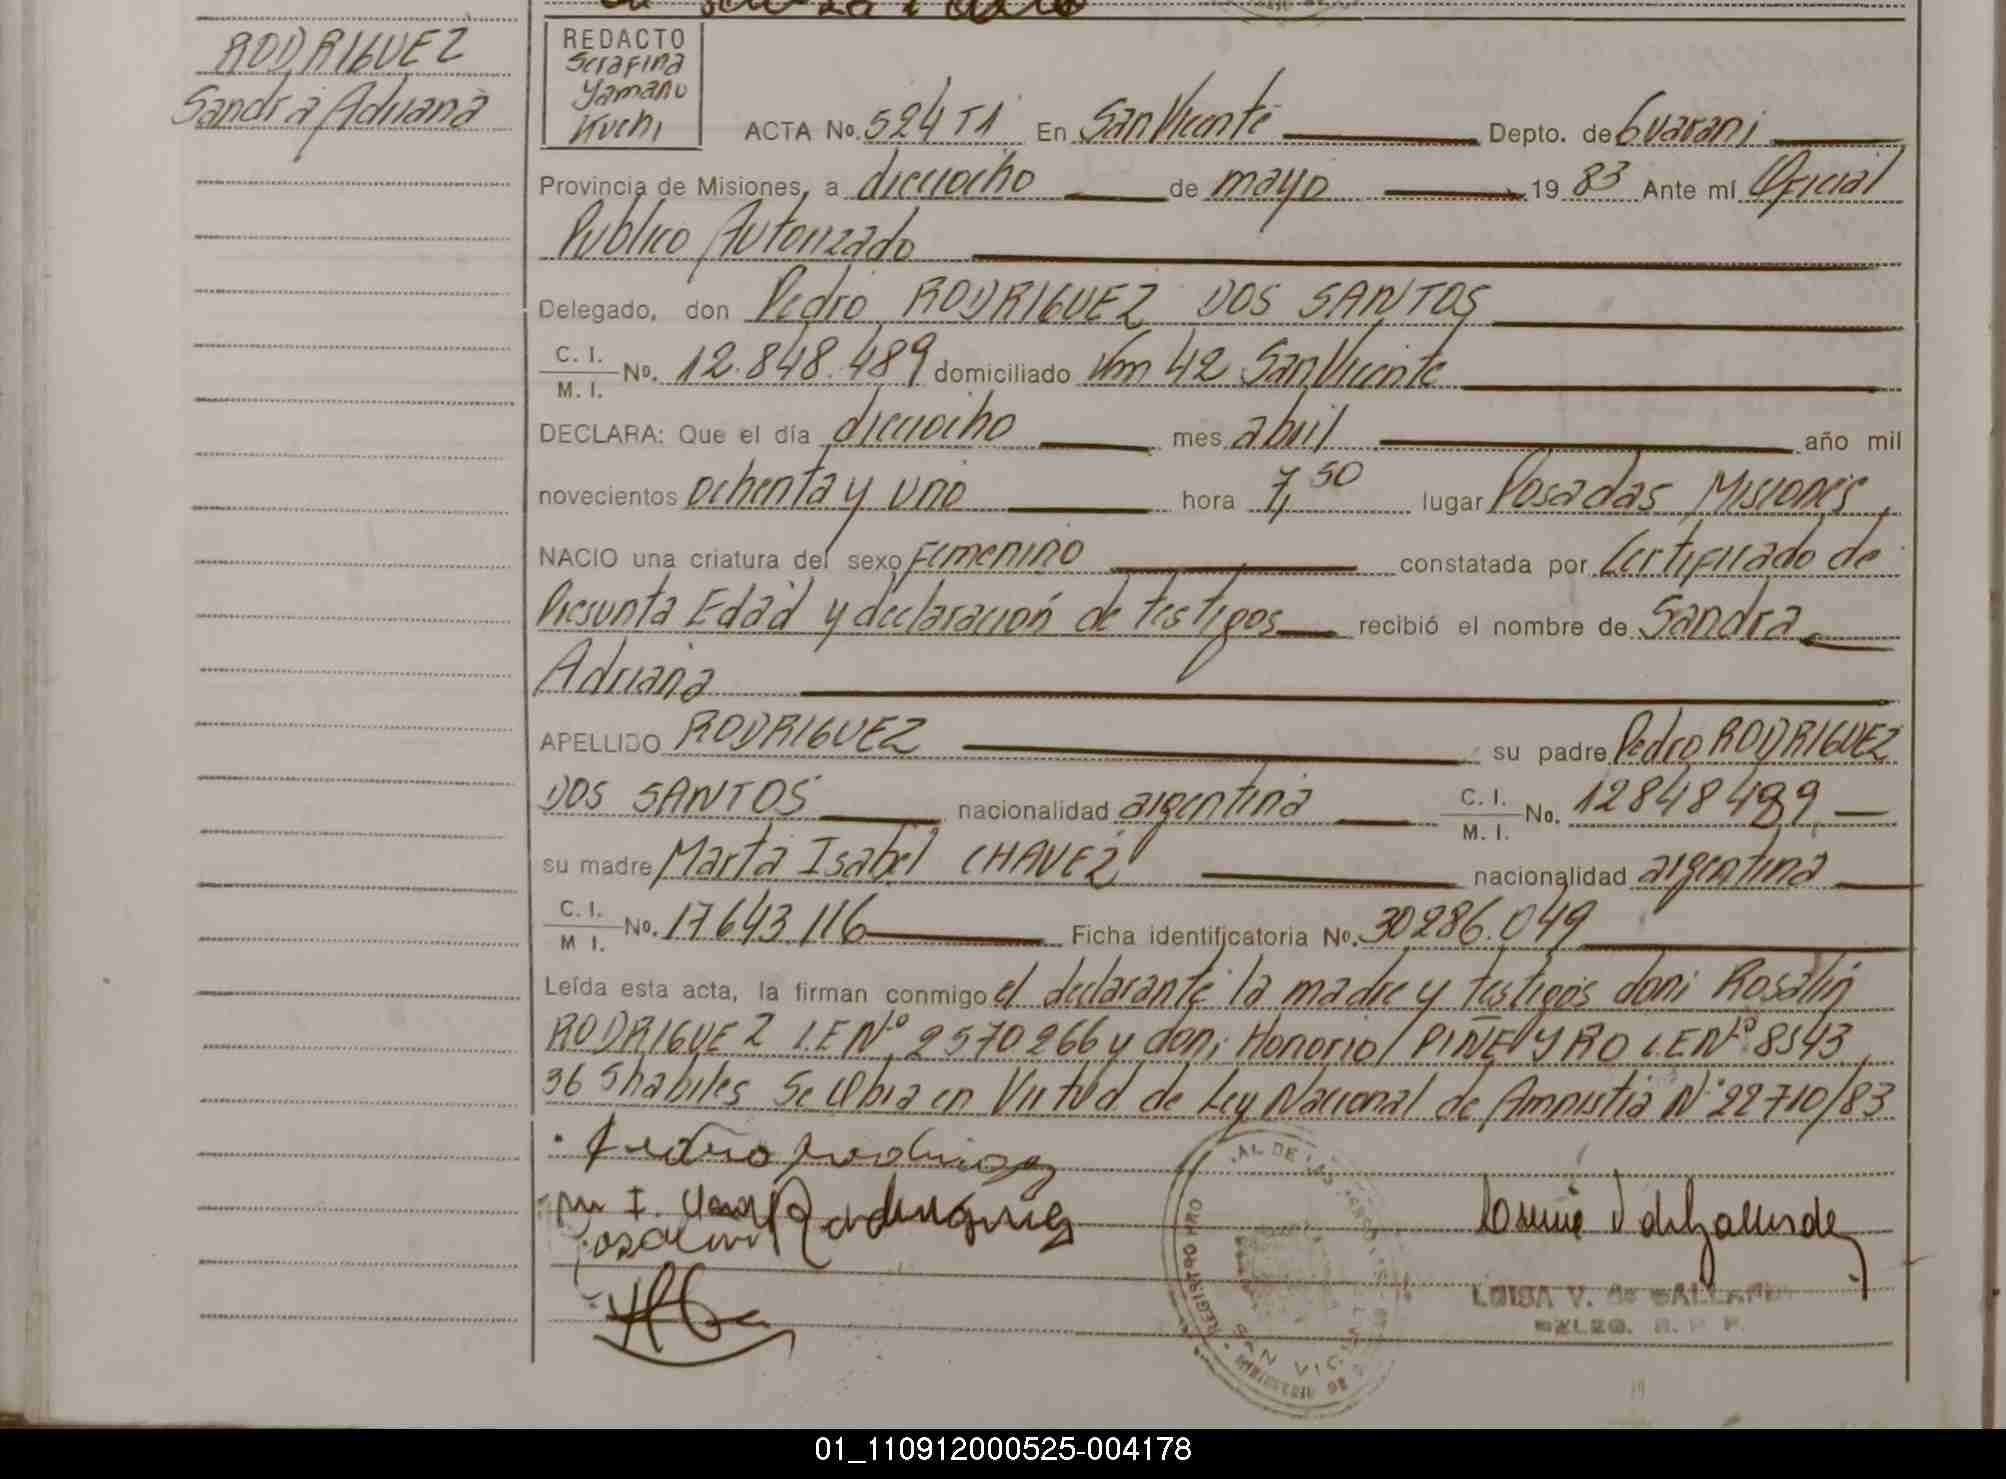 RODRIGUEZ
Sandra Adriana
REDACTO
Serafina
Yamano
Kuchi
ACTA No. 524 T1 En San Vicente Depto. de Guarani
Provincia de Misiones, a dieciocho de mayo 19 83 Ante mí Oficial
Publico Autorizado
Delegado, don Pedro RODRIGUEZ DOS SANTOS
C. I.
M. I. No. 12.848.489 domiciliado Km 42 San Vicente
DECLARA: Que el día dieciocho mes abril año mil
novecientos ochenta y uno hora 7,50 lugar Posadas Misiones,
NACIO una criatura del sexo Femenino constatada por Certificado de
Presunta Edad y declaración de testigos recibió el nombre de Sandra
Adriana
APELLIDO RODRIGUEZ su padre Pedro RODRIGUEZ
DOS SANTOS nacionalidad argentina C. I.
M. I. No. 12848489
su madre Marta Isabel CHAVEZ nacionalidad argentina
C. I.
M I. No. 17643.116 Ficha identificatoria No. 30286.049
Leída esta acta, la firman conmigo el declarante la madre y testigos don: Rosalin
RODRIGUEZ L.E Nº 2570266 y don: Honorio PIÑEYRO L.E Nº 8543
36 5 habiles Se Labra en Virtud de Ley Nacional de Amnistia Nº 22710/83
Pedro Rodriguez
REGISTRO PRO
SAN VIC
LUISA V. de GALLARDO
01_110912000525-004178